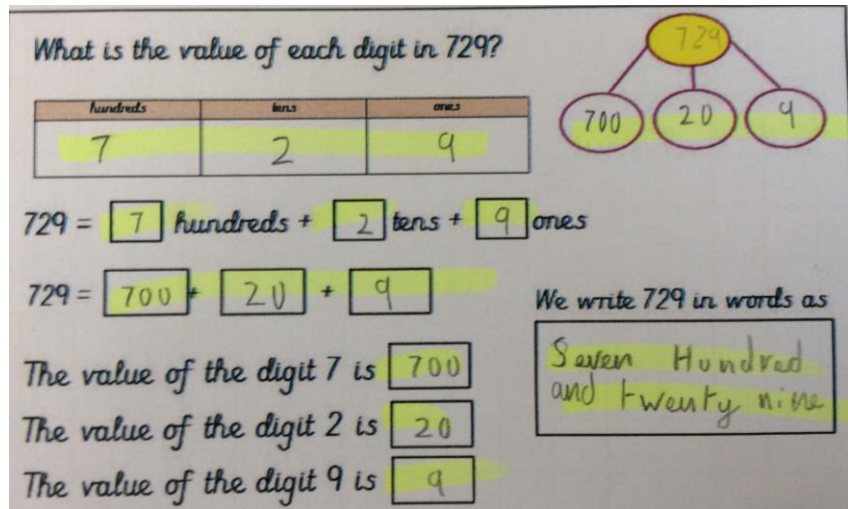 What is the value of each digit in 729?
729
700 20 9
hundreds tens ones
7 2 9
729 = 7 hundreds + 2 tens + 9 ones
729 = 700 + 20 + 9
We write 729 in words as
Seven Hundred
and twenty nine
The value of the digit 7 is 700
The value of the digit 2 is 20
The value of the digit 9 is 9